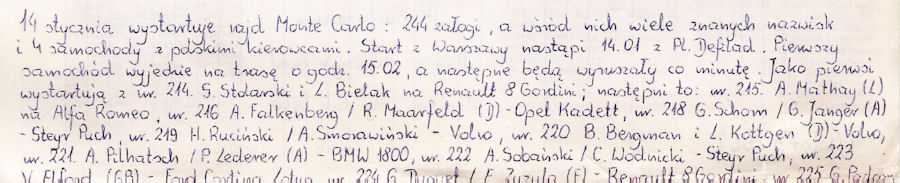 14 stycznia wystartuje rajd Monte Carlo: 244 załogi, a wśród nich wiele znanych nazwisk
i 4 samochody z polskimi kierowcami. Start z Warszawy nastąpi 14.01 z Pl. Defilad. Pierwszy
samochód wyjedzie na trasę o godz. 15.02, a następne będą wyruszały co minutę. Jako pierwsi
wystartują z nr. 214. S. Stolarski i L. Bielak na Renault 8 Gordini; następni to: nr. 215. A. Mathay (L)
na Alfa Romeo, nr. 216 A. Falkenberg / R. Maarfeld (D) - Opel Kadett, nr. 218 G. Schorn / G. Janger (A)
- Steyr Puch, nr. 219 H. Ruciński / A. Smorawiński - Volvo, nr. 220 B. Bergman i L. Kottgen (D) - Volvo,
nr. 221. A. Pilhatsch / P. Lederer (A) - BMW 1800, nr. 222 A. Sobański / C. Wodnicki - Steyr Puch, nr. 223
V. Elford (GB) - Ford Cortina Lotus, nr. 224 G. / F. Zyzula (F) - Renault 8 Gordini, nr. 225 G.